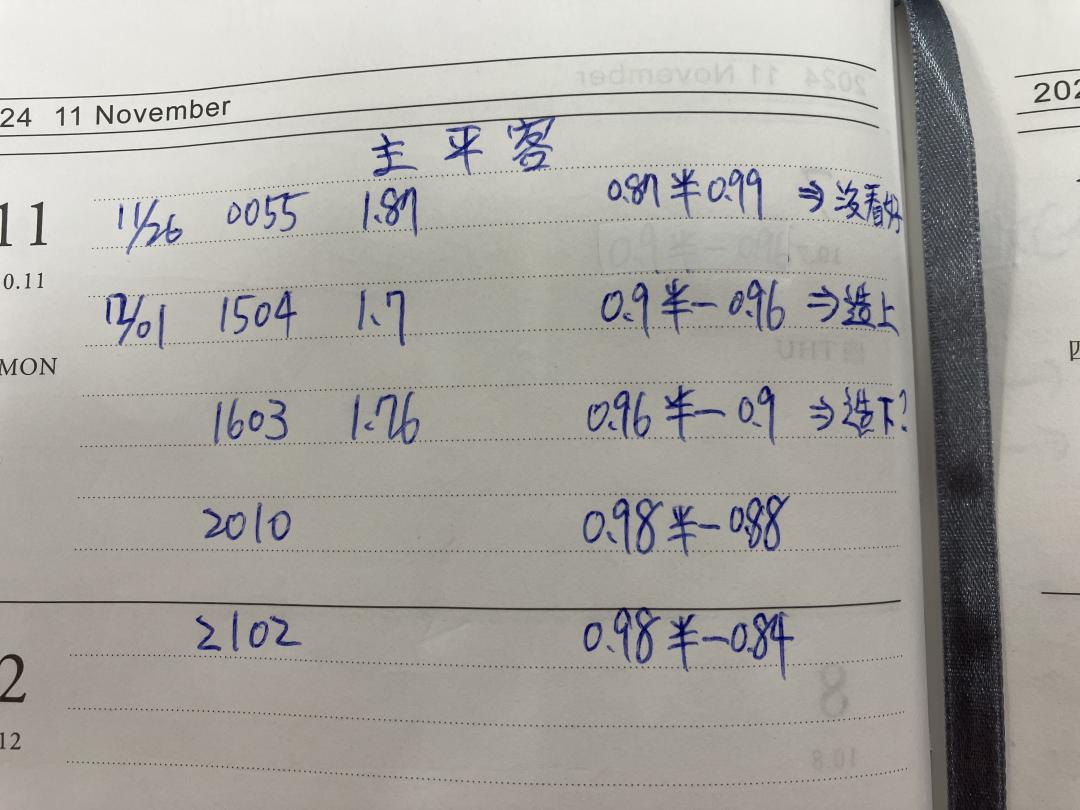 24 11 November
202
主 平 客
11
11/26 0055 1.87 0.87 半 0.99 ⇒ 没看好
0.11
12/01 1504 1.7 0.9 半一 0.96 ⇒ 造上
MON
四
1603 1.76 0.96 半一 0.9 ⇒ 造下?
2010 0.98 半一 0.88
2102 0.98 半一 0.84
2
12